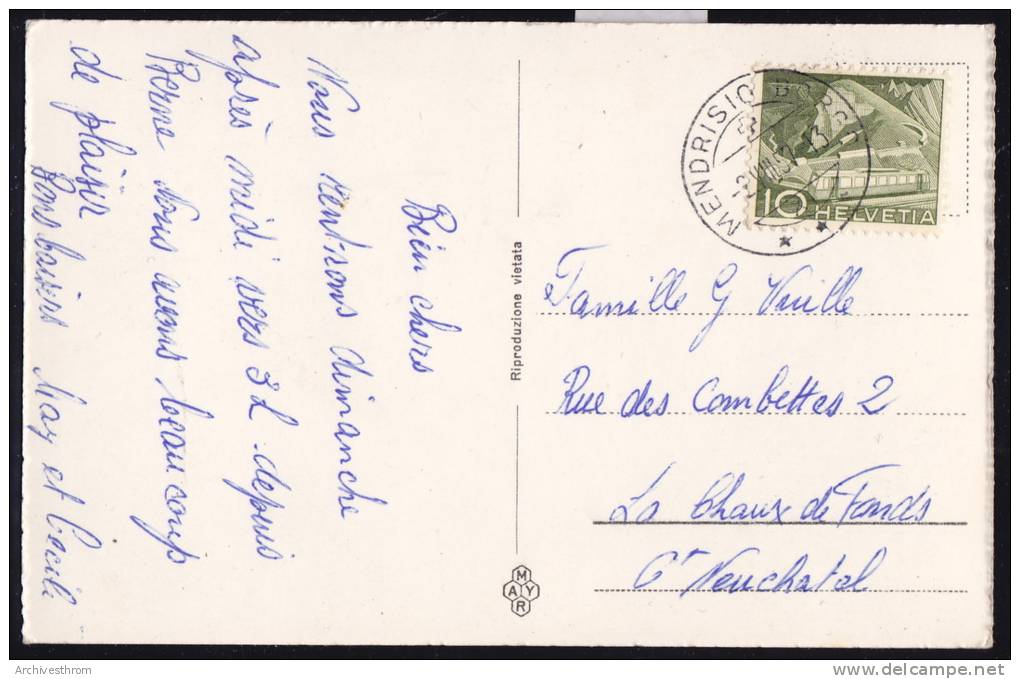 Bien chers
Nous rentrons dimanche
après midi vers 3 h. depuis
Berne Nous avons beaucoup
de plaisir
Bons baisers May et Cecile
Riproduzione vietata
MAYR
MENDRISIO BORGO
VIII 51 - 13
10 HELVETIA
Famille G Vuille
Rue des Combettes 2
La Chaux de Fonds
Ct Neuchatel
Archivesthrom
www.delcampe.net